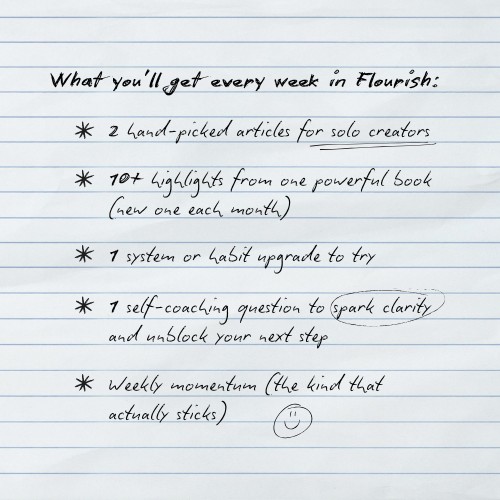 What you'll get every week in Flourish:
* 2 hand-picked articles for solo creators
* 10+ highlights from one powerful book
(new one each month)
* 1 system or habit upgrade to try
* 1 self-coaching question to spark clarity
and unblock your next step
* Weekly momentum (the kind that
actually sticks)